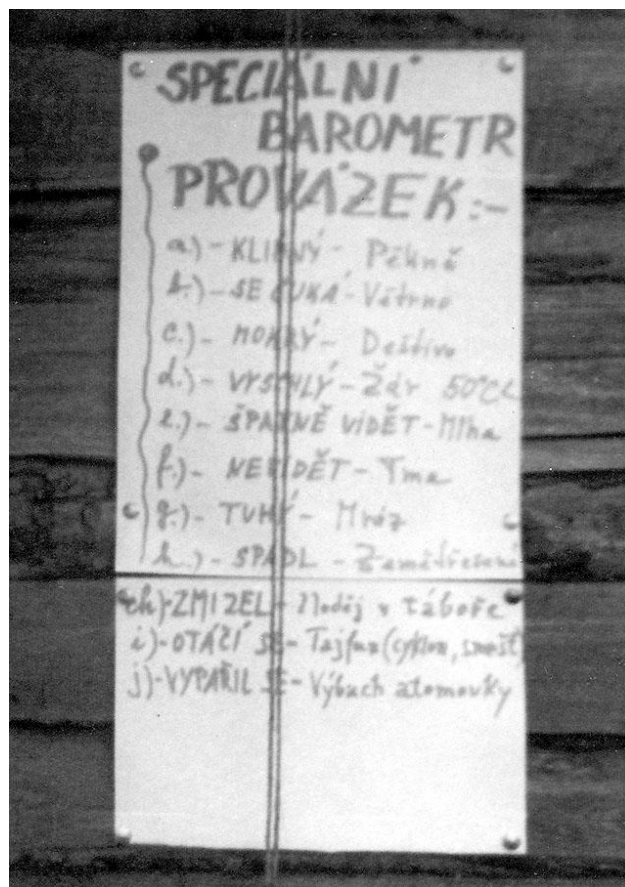 SPECIÁLNÍ
BAROMETR
PROVÁZEK:-
a.)- KLIDNÝ - Pěkně
b.)- SE CUKÁ - Větrno
c.)- MOKRÝ - Deštivo
d.)- VYSCHLÝ - Žár 50°C
e.)- ŠPATNĚ VIDĚT - Mlha
f.)- NEVIDĚT - Tma
g.)- TUHÝ - Mráz
h.)- SPADL - Zemětřesení
ch)- ZMIZEL - Zloděj v táboře
i)- OTÁČÍ SE - Tajfun (cyklon, smršť)
j)- VYPAŘIL SE - Výbuch atomovky